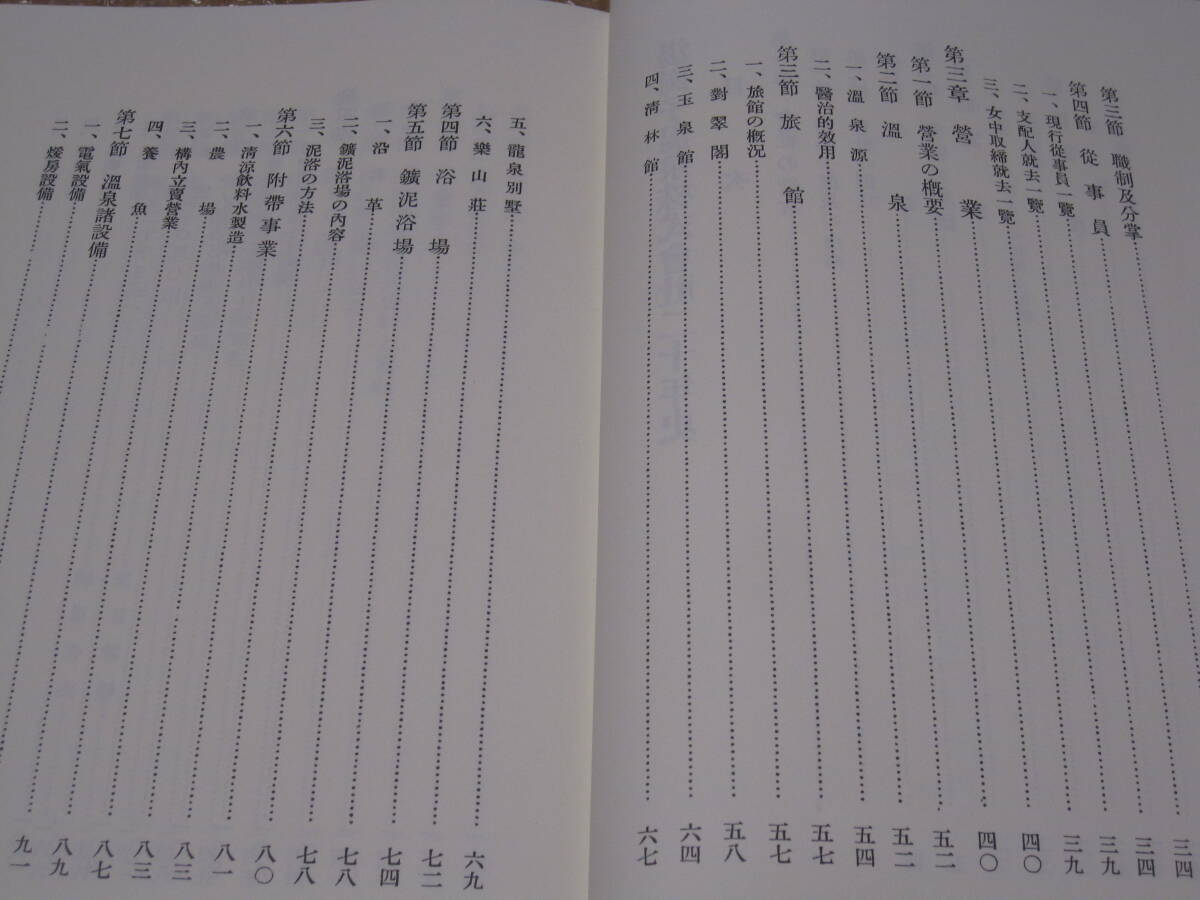 第三節 職制及分掌
第四節 從事員 三四
一、現行從事員一覽 三四
二、支配人就去一覽 三九
三、女中取締就去一覽 三九
第三章 營業 四〇
第一節 營業の概要 四〇
第二節 溫泉 五二
一、溫泉源 五二
二、醫治的效用 五四
第三節 旅館 五七
一、旅館の概況 五七
二、對翠閣 五八
三、玉泉館 六四
四、清林館 六七
五、龍泉別墅 六九
六、樂山莊 七二
第四節 浴場 七四
第五節 鑛泥浴場 七八
一、沿革 七八
二、鑛泥浴場の內容 八〇
三、泥浴の方法 八一
第六節 附帶事業 八三
一、清涼飲料水製造 八三
二、農場 八七
三、構內立賣營業 八九
四、養魚 九一
第七節 溫泉諸設備
一、電氣設備
二、煖房設備